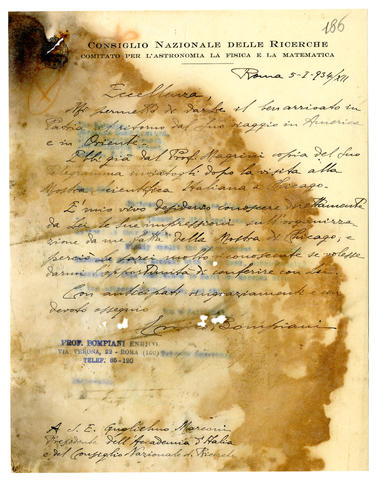 186
CONSIGLIO NAZIONALE DELLE RICERCHE
COMITATO PER L'ASTRONOMIA LA FISICA E LA MATEMATICA
Roma 5-I-934/XII
Eccellenza,
Mi permetto di darLe il ben arrivato in
Patria di ritorno dal Suo viaggio in America
e in Oriente.
Ebbi già dal Prof. Magrini copia del Suo
telegramma inviatogli dopo la visita alla
Mostra scientifica Italiana a Chicago.
È mio vivo desiderio conoscere direttamente
da Lei le sue impressioni sull'organizza
zione da me fatta della Mostra di Chicago, e
perciò Le sarei molto riconoscente se volesse
darmi opportunità di conferire con Lei.
Con anticipati ringraziamenti e con
devoto ossequio
Bompiani
PROF. BOMPIANI ENRICO
VIA VERONA, 22 - ROMA
TELEF. 85-120
A S. E. Guglielmo Marconi
Presidente dell'Accademia d'Italia
e del Consiglio Nazionale di Ricerche